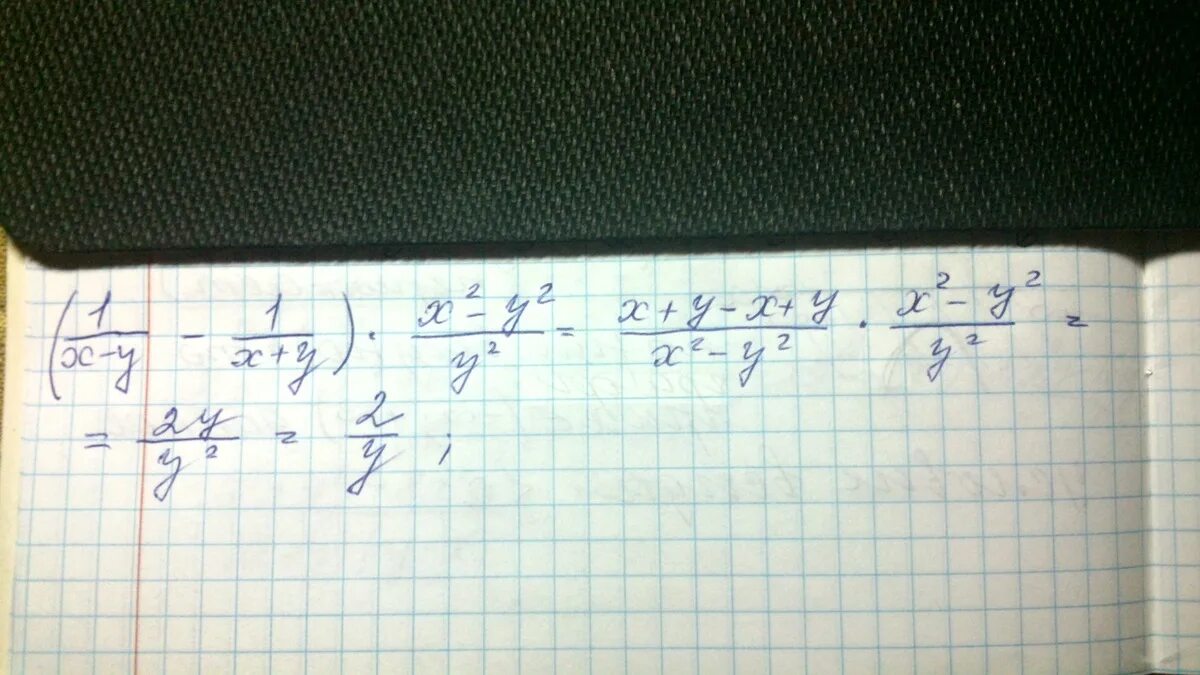 (1/(x-y) - 1/(x+y)) · (x²-y²)/y² = (x+y-x+y)/(x²-y²) · (x²-y²)/y² =
= 2y/y² = 2/y ;